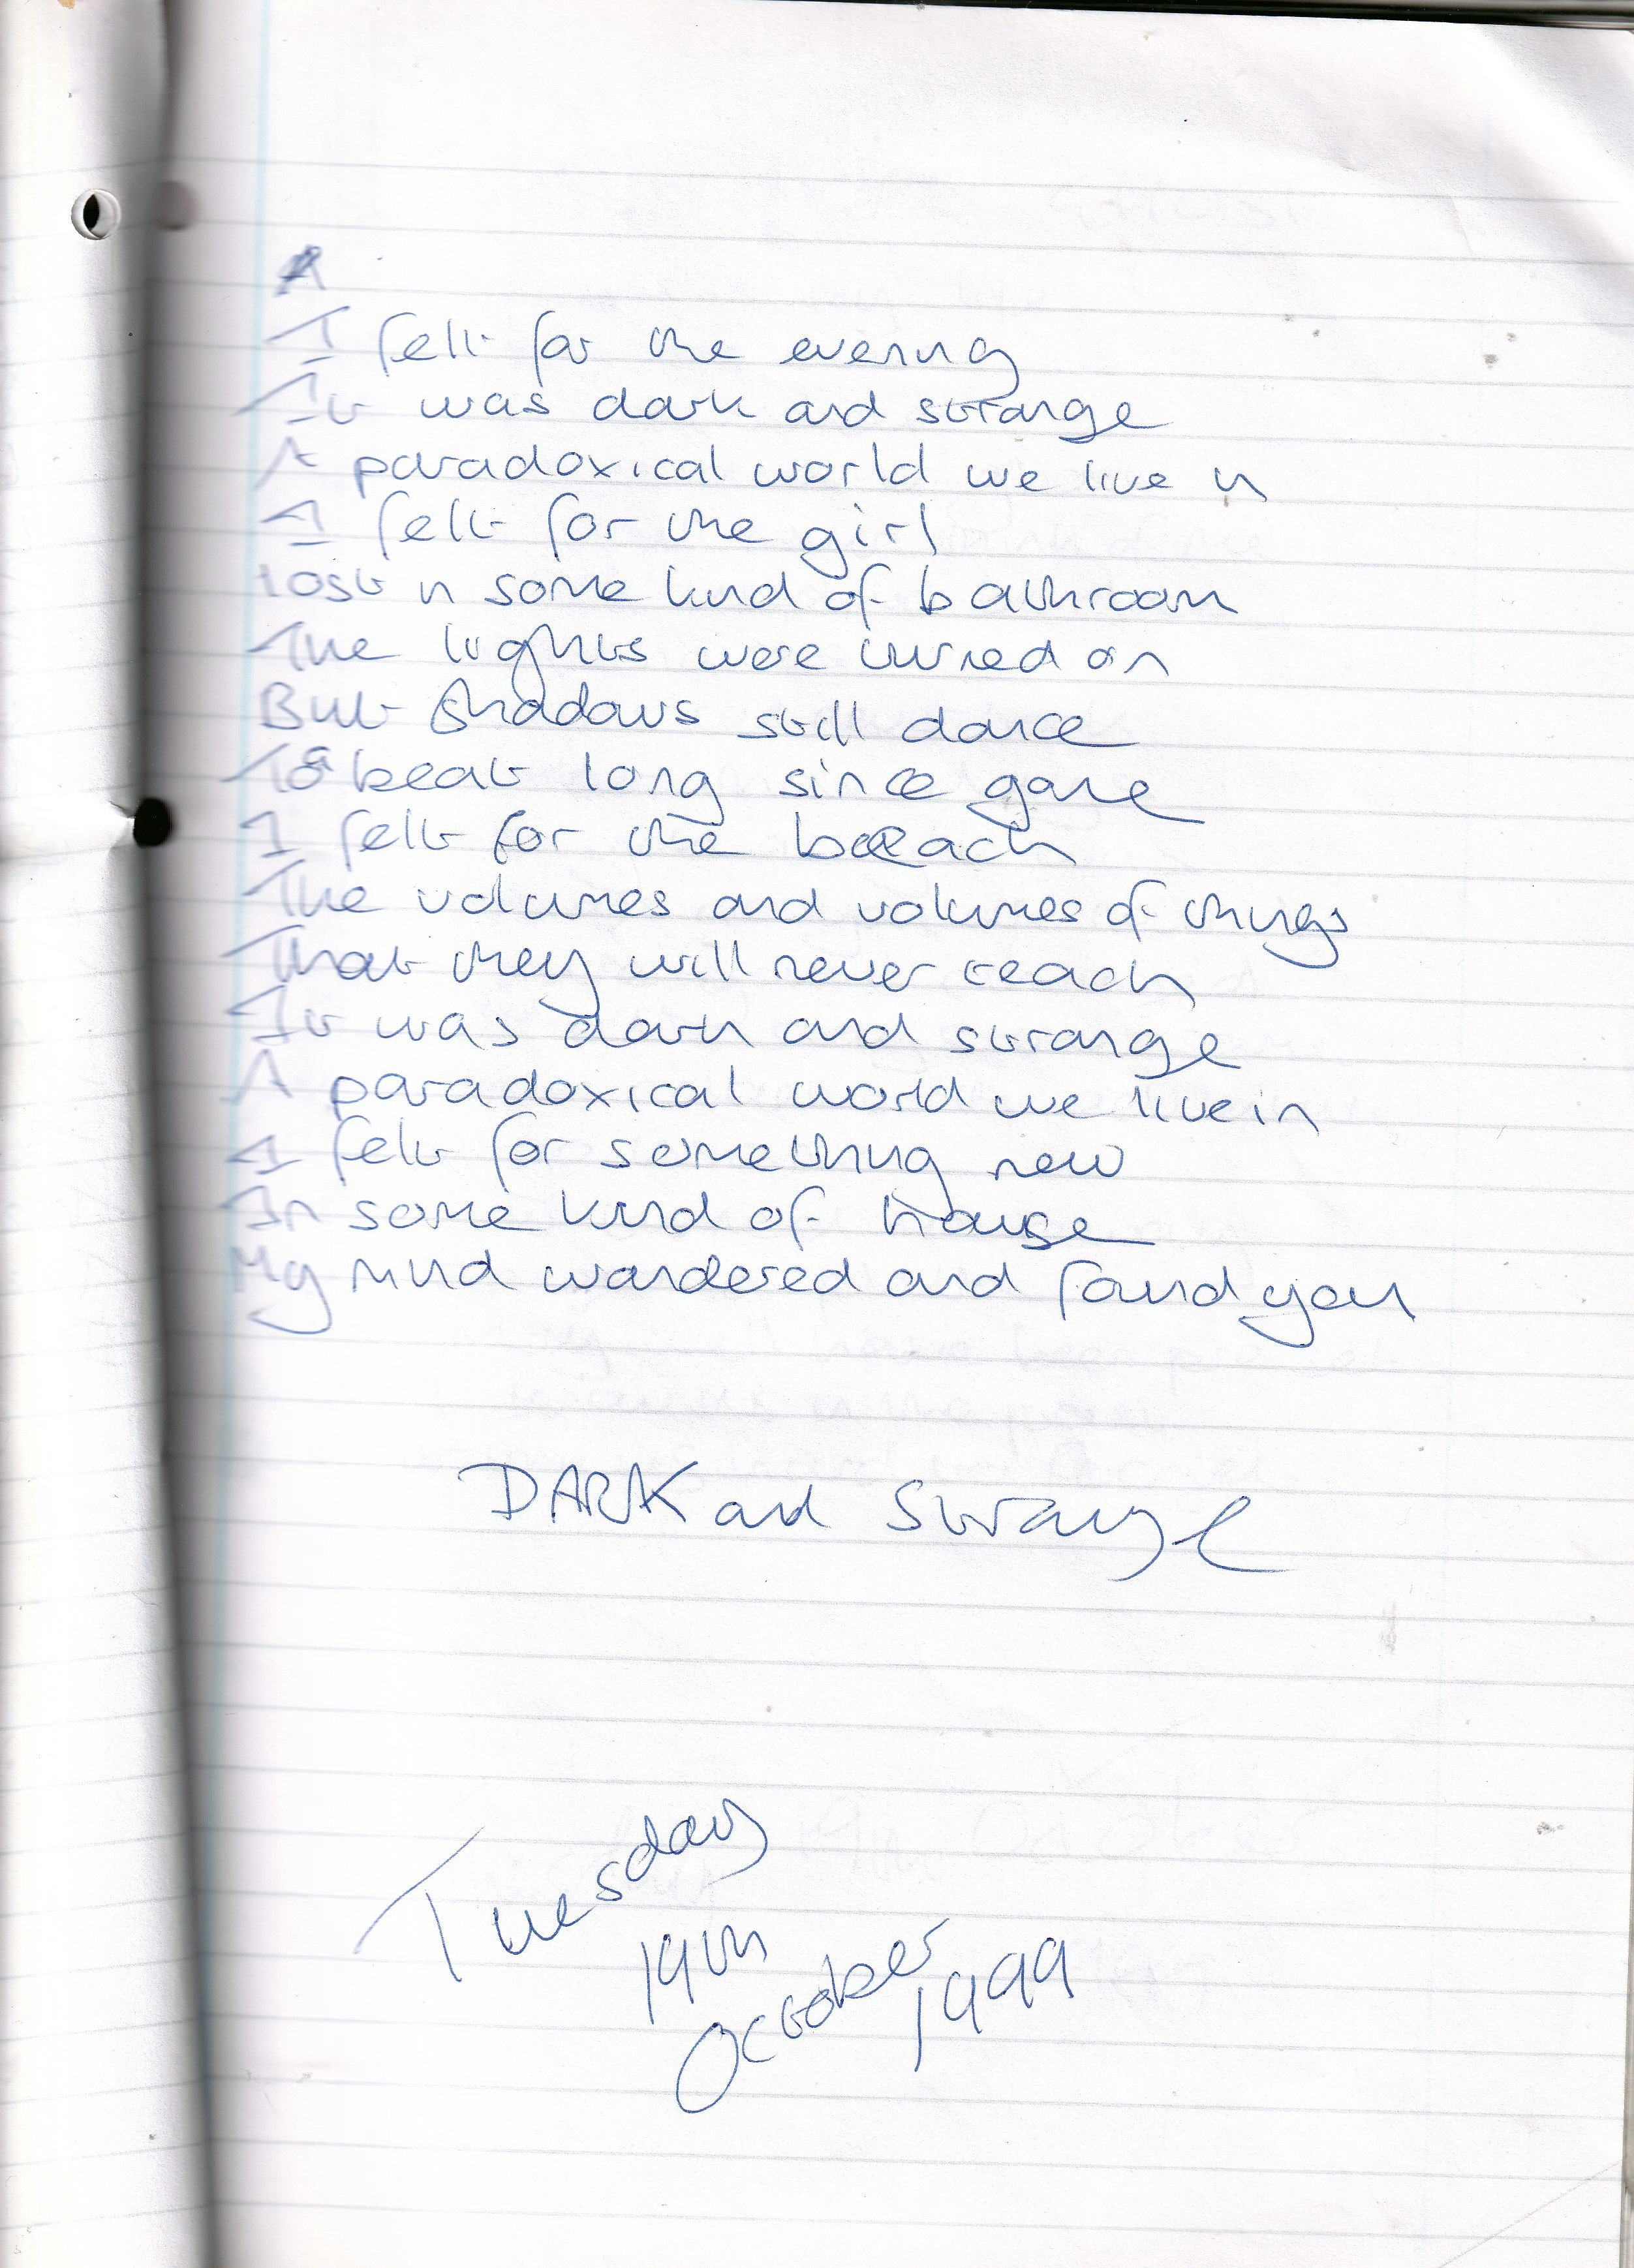 I felt for the evening
It was dark and strange
A paradoxical world we live in
I felt for the girl
Lost in some kind of bathroom
The lights were turned on
But shadows still dance
To a beat long since gone
I felt for the beach
The volumes and volumes of things
That they will never reach
It was dark and strange
A paradoxical world we live in
I felt for something new
In some kind of house
My mind wandered and found you
DARK and Strange
Tuesday
19th
October 1999